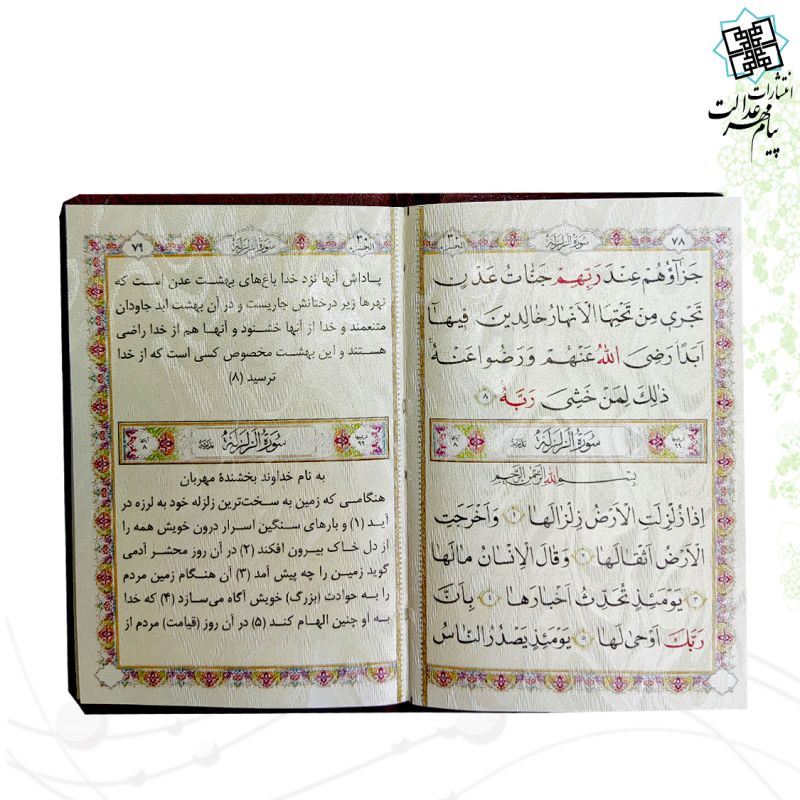 انتشارات
پیام مهر عدالت
۷۸
سورة الزلزلة
جَزَآؤُهُمْ عِنْدَ رَبِّهِمْ جَنَّاتُ عَدْنٍ
تَجْرِی مِنْ تَحْتِهَا الْاَنْهَارُ خَالِدِینَ فِیهَآ
اَبَدًا رَضِیَ اللّٰهُ عَنْهُمْ وَرَضُوا عَنْهُ
ذٰلِكَ لِمَنْ خَشِیَ رَبَّهُ ۸
سورة الزلزلة مدنیة
بسم الله الرحمن الرحیم
اِذَا زُلْزِلَتِ الْاَرْضُ زِلْزَالَهَا ۱ وَاَخْرَجَتِ
الْاَرْضُ اَثْقَالَهَا ۲ وَقَالَ الْاِنْسَانُ مَالَهَا
۳ یَوْمَئِذٍ تُحَدِّثُ اَخْبَارَهَا ۴ بِاَنَّ
رَبَّكَ اَوْحٰی لَهَا ۵ یَوْمَئِذٍ یَصْدُرُ النَّاسُ
۷۹
سورة الزلزلة
پاداش آنها نزد خدا باغ‌های بهشت عدن است که
نهرها زیر درختانش جاریست و در آن بهشت ابد جاودان
متنعمند و خدا از آنها خشنود و آنها هم از خدا راضی
هستند و این بهشت مخصوص کسی است که از خدا
ترسید (۸)
سورة الزلزلة مدنیة
به نام خداوند بخشندهٔ مهربان
هنگامی که زمین به سخت‌ترین زلزله خود به لرزه در
آید (۱) و بارهای سنگین اسرار درون خویش همه را
از دل خاک بیرون افکند (۲) در آن روز محشر آدمی
گوید زمین را چه پیش آمد (۳) آن هنگام زمین مردم
را به حوادث (بزرگ) خویش آگاه می‌سازد (۴) که خدا
به او چنین الهام کند (۵) در آن روز (قیامت) مردم از